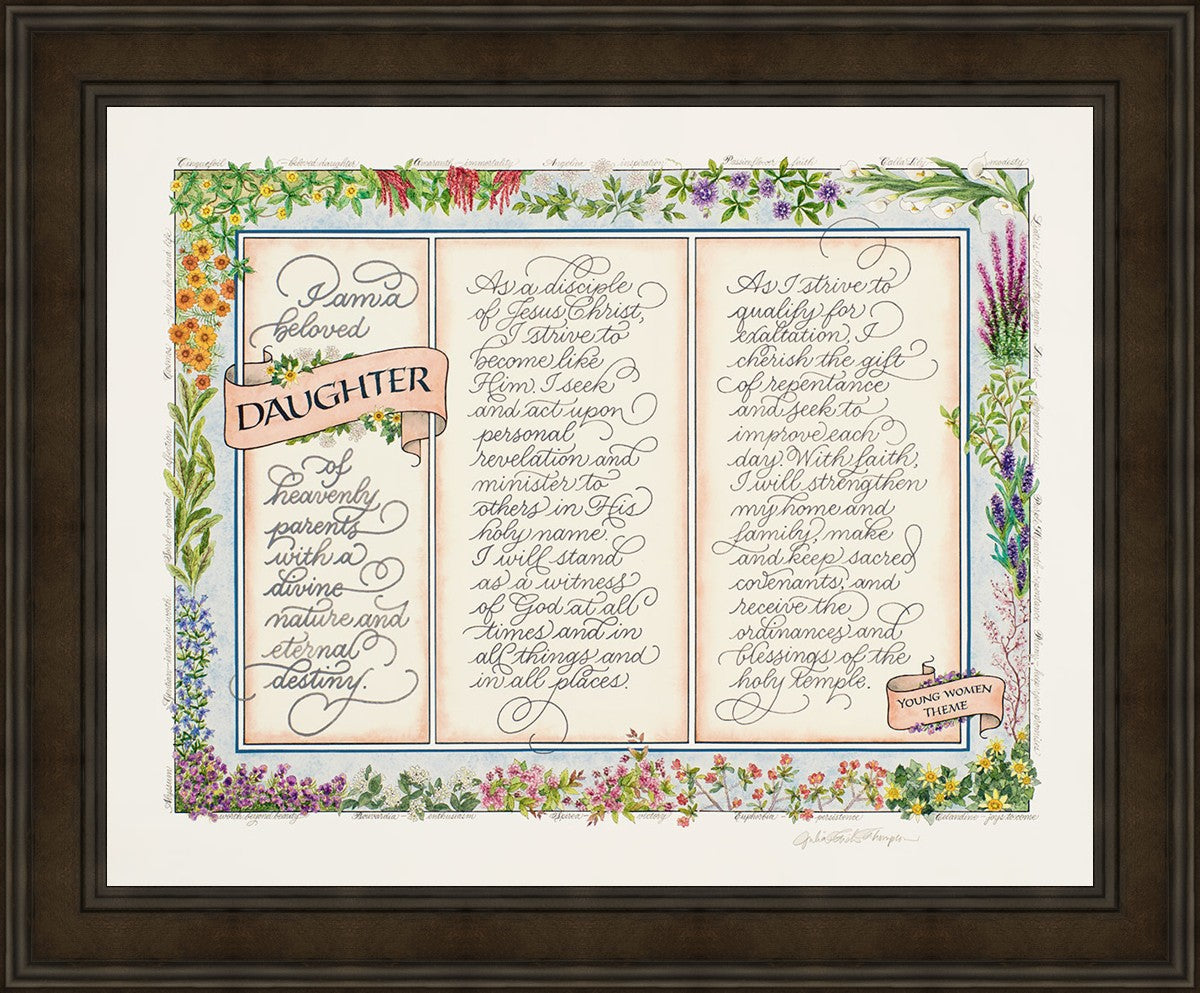 Cinquefoil – beloved daughter Amaranth – immortality Angelica – inspiration Passionflower – faith Calla Lily – modesty
I am a
beloved
DAUGHTER
of
heavenly
parents
with a
divine
nature and
eternal
destiny.
As a disciple
of Jesus Christ,
I strive to
become like
Him. I seek
and act upon
personal
revelation and
minister to
others in His
holy name.
I will stand
as a witness
of God at all
times and in
all things and
in all places.
As I strive to
qualify for
exaltation, I
cherish the gift
of repentance
and seek to
improve each
day. With faith,
I will strengthen
my home and
family, make
and keep sacred
covenants, and
receive the
ordinances and
blessings of the
holy temple.
YOUNG WOMEN
THEME
worth beyond beauty Bouvardia – enthusiasm Spirea – victory Euphorbia – persistence Celandine – joys to come